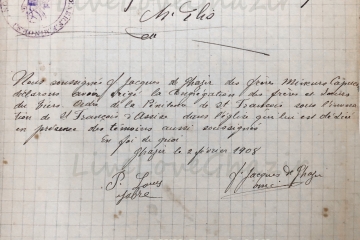 Mr Elie
Nous soussigné fr Jacques de Ghazir des frères Mineurs Capucins
déclarons avoir érigé la Congrégation des frères et Soeurs
du Tiers Ordre de la Pénitence de St François sous l'invoca
tion de St François d'Assise dans l'église qui leur est dédiée
en présence des témoins aussi soussignés
En foi de quoi
Ghazir le 2 février 1908
P. Louis
fr Jacques de Ghazir